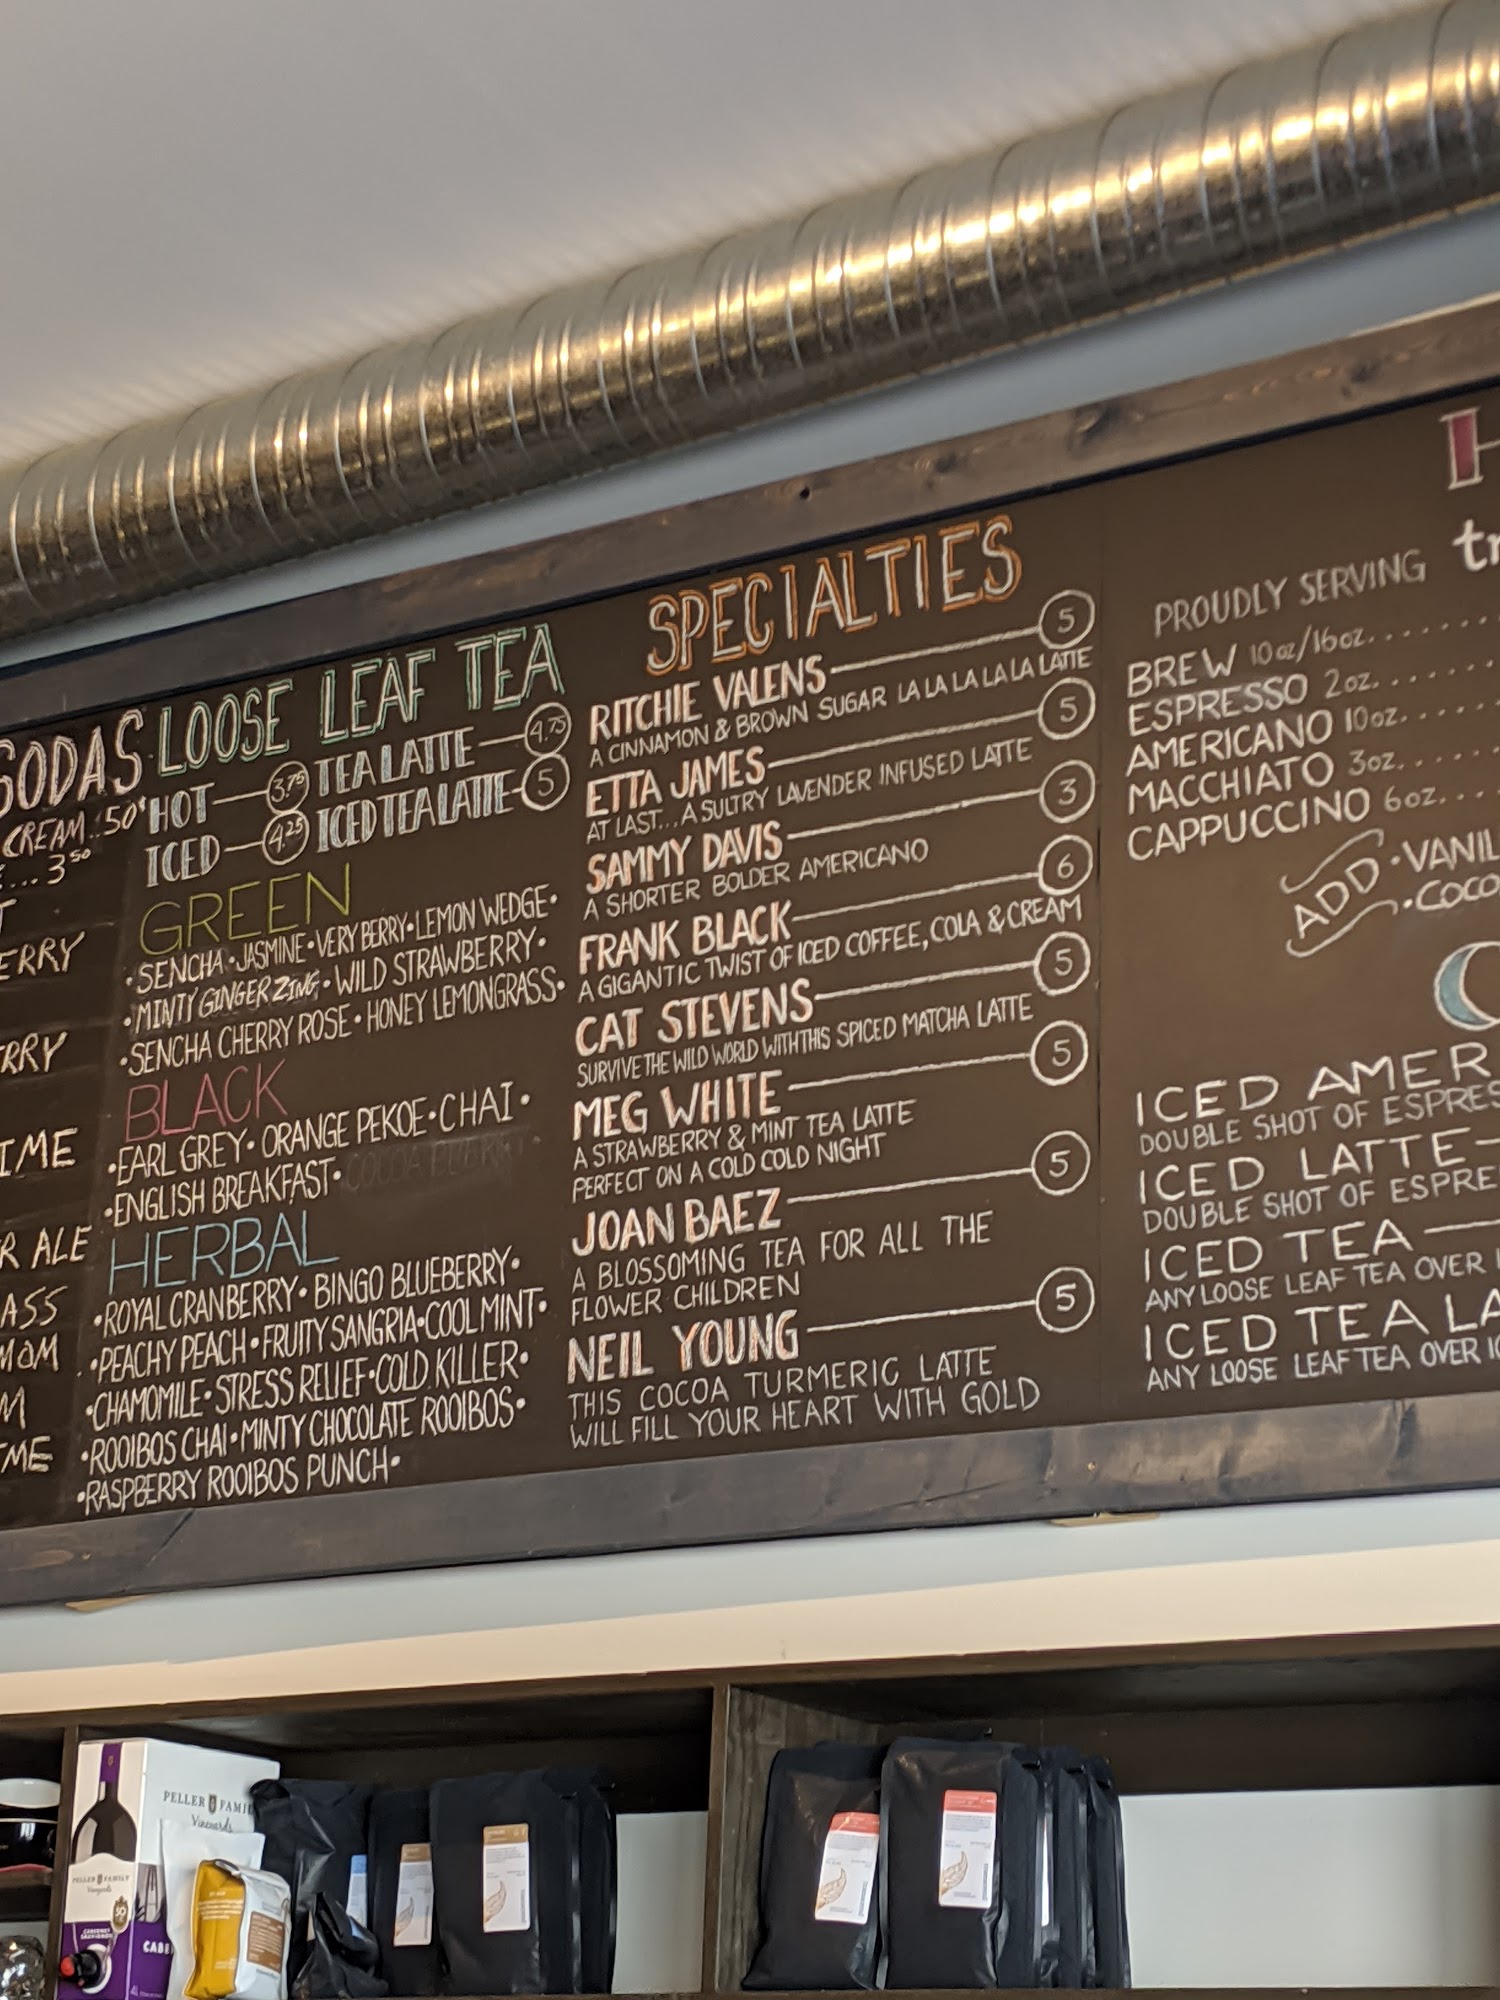 SODAS
CREAM..50¢
...3.50
ERRY
RRY
IME
R ALE
ASS
MOM
M
ME
LOOSE LEAF TEA
HOT 3.75 TEA LATTE 4.75
ICED 4.25 ICED TEA LATTE 5
GREEN
•SENCHA•JASMINE•VERY BERRY•LEMON WEDGE•
•MINTY GINGER ZING•WILD STRAWBERRY•
•SENCHA CHERRY ROSE•HONEY LEMONGRASS•
BLACK
•EARL GREY•ORANGE PEKOE•CHAI•
•ENGLISH BREAKFAST•
HERBAL
•ROYAL CRANBERRY•BINGO BLUEBERRY•
•PEACHY PEACH•FRUITY SANGRIA•COOL MINT•
•CHAMOMILE•STRESS RELIEF•COLD KILLER•
•ROOIBOS CHAI•MINTY CHOCOLATE ROOIBOS•
•RASPBERRY ROOIBOS PUNCH•
SPECIALTIES
RITCHIE VALENS 5
A CINNAMON & BROWN SUGAR LA LA LA LA LA LATTE
ETTA JAMES 5
AT LAST... A SULTRY LAVENDER INFUSED LATTE
SAMMY DAVIS 3
A SHORTER BOLDER AMERICANO
FRANK BLACK 6
A GIGANTIC TWIST OF ICED COFFEE, COLA & CREAM
CAT STEVENS 5
SURVIVE THE WILD WORLD WITH THIS SPICED MATCHA LATTE
MEG WHITE 5
A STRAWBERRY & MINT TEA LATTE
PERFECT ON A COLD COLD NIGHT
JOAN BAEZ 5
A BLOSSOMING TEA FOR ALL THE
FLOWER CHILDREN
NEIL YOUNG 5
THIS COCOA TURMERIC LATTE
WILL FILL YOUR HEART WITH GOLD
H
PROUDLY SERVING tr
BREW 10oz/16oz........
ESPRESSO 2oz......
AMERICANO 10oz.....
MACCHIATO 3oz.....
CAPPUCCINO 6oz....
ADD •VANIL
•COCO
ICED AMER
DOUBLE SHOT OF ESPRES
ICED LATTE
DOUBLE SHOT OF ESPRE
ICED TEA
ANY LOOSE LEAF TEA OVER I
ICED TEA LA
ANY LOOSE LEAF TEA OVER IC
PELLER FAMI
Vineyards
PELLER FAMILY
Vineyards
CABERNET
SAUVIGNON
CABE